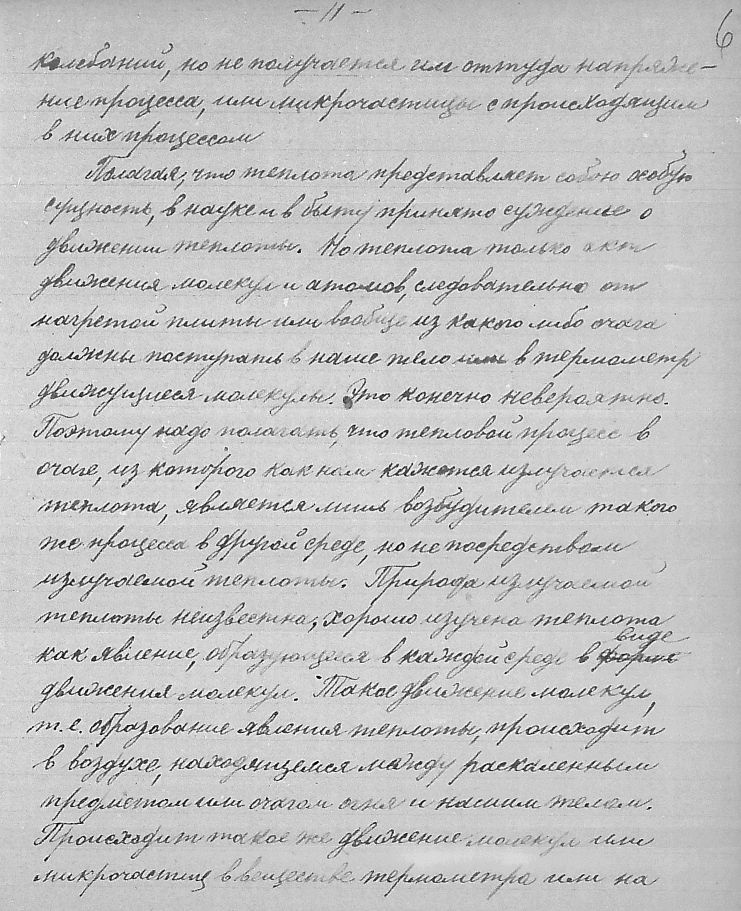 - 11 -
6
колебаний, но не получается им оттуда напряже-
ние процесса, или микрочастицы с происходящим
в них процессом
Полагая, что теплота представляет собою особую
сущность, в науке и в быту принято суждение о
движении теплоты. Но теплота только акт
движения молекул и атомов, следовательно от
нагретой плиты или вообще из какого либо очага
должны поступать в наше тело или в термометр
движущиеся молекулы. Это конечно невероятно.
Поэтому надо полагать, что тепловой процесс в
очаге, из которого как нам кажется излучается
теплота, является лишь возбудителем такого
же процесса в другой среде, но не посредством
излучаемой теплоты. Природа излучаемой
теплоты неизвестна, хорошо изучена теплота
как явление, образующееся в каждой среде в форме виде
движения молекул. Такое движение молекул,
т.е. образование явления теплоты, происходит
в воздухе, находящемся между раскаленным
предметом или очагом огня и нашим телом.
Происходит такое же движение молекул или
микрочастиц в веществе термометра или на